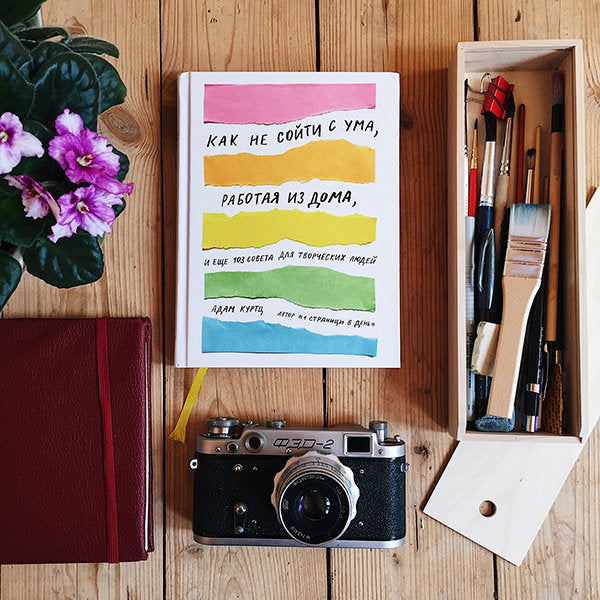 КАК НЕ СОЙТИ С УМА,
РАБОТАЯ ИЗ ДОМА,
И ЕЩЕ 103 СОВЕТА ДЛЯ ТВОРЧЕСКИХ ЛЮДЕЙ
АДАМ КУРТЦ АВТОР «1 СТРАНИЦИ В ДЕНЬ»
ФЭД-2